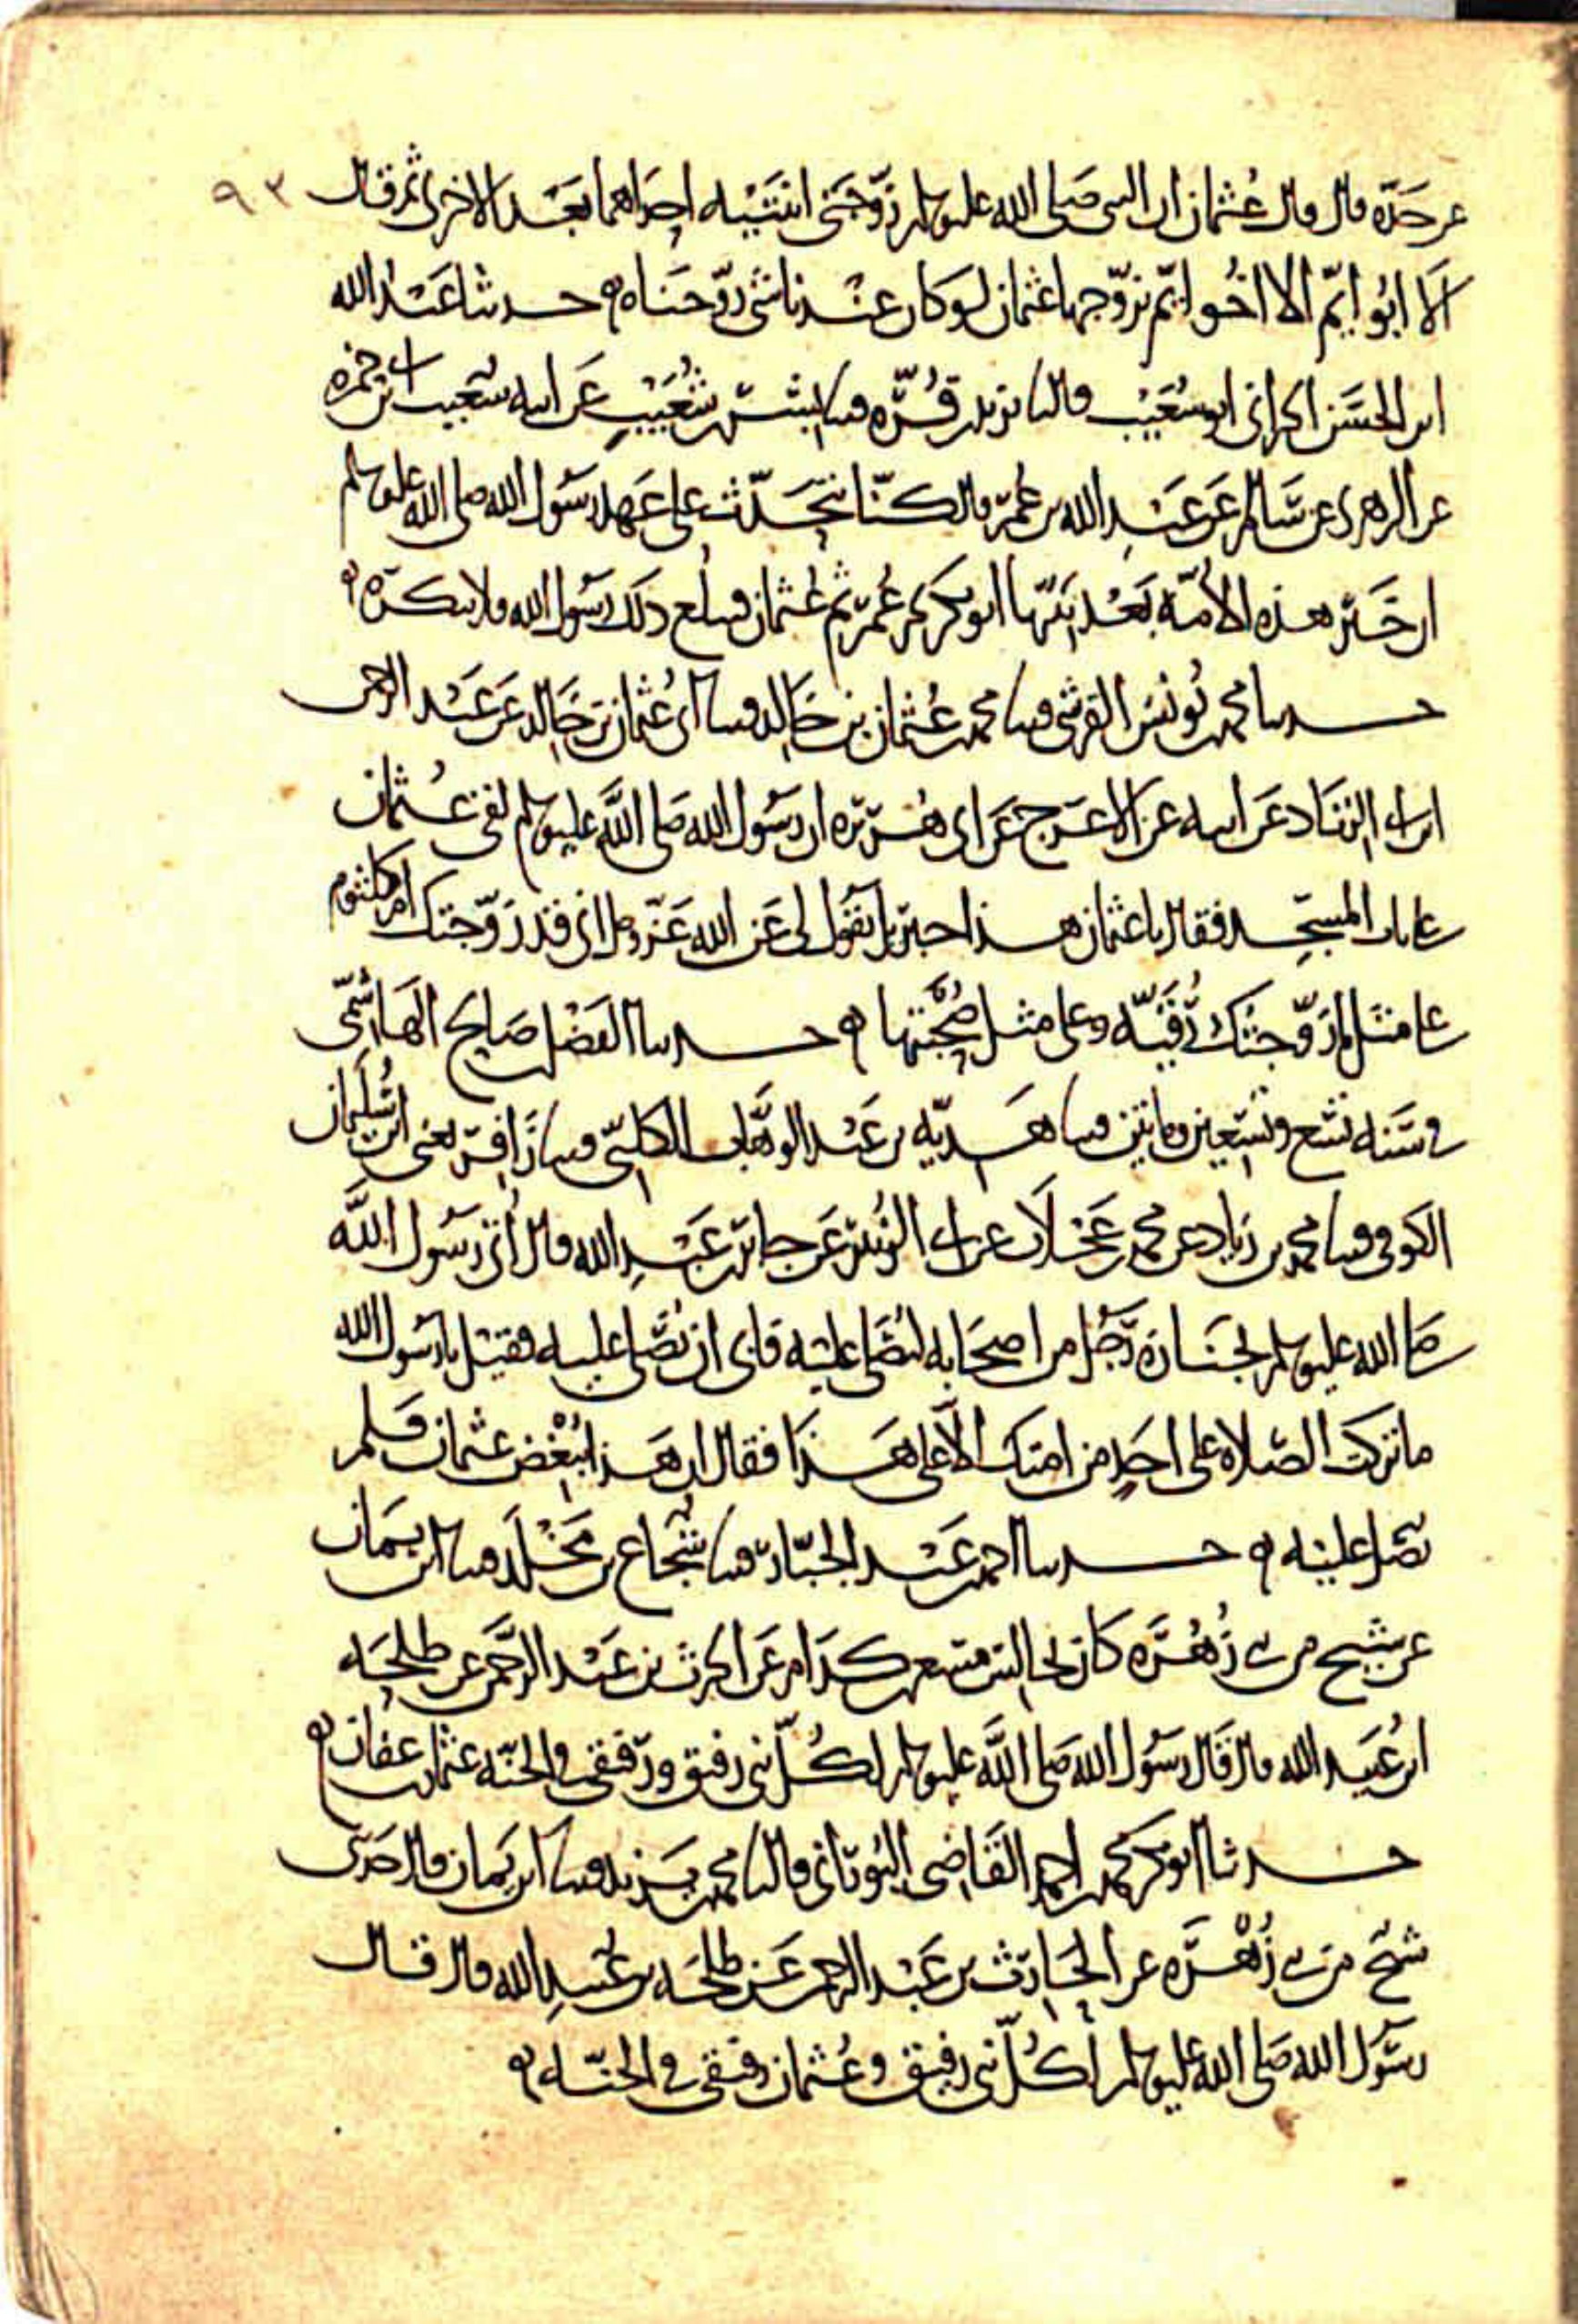 ٩٣
عن جده قال قال عثمان ان النبي صلى الله عليه وسلم زوجني ابنتيه احداهما بعد الاخرى ثم قال
ألا ابو ايّم الا اخو ايّم يزوجها عثمان لو كان عندنا شي زوجناه حدثنا عبد الله
ابن الحسن الحراني ابو شعيب قال نا يزيد بن قرة قثنا بشر بن شعيب عن ابيه شعيب بن ابي حمزة
عن الزهري عن سالم عن عبد الله بن عمر قال كنا نتحدث على عهد رسول الله صلى الله عليه وسلم
ان خير هذه الامة بعد نبيها ابو بكر ثم عمر ثم عثمان فبلغ ذلك رسول الله ولا ينكره
حدثنا محمد بن يونس القرشي قثنا محمد بن عثمان بن خالد قثنا ابي عثمان بن خالد عن عبد الرحمن
ابن ابي الزناد عن ابيه عن الاعرج عن ابي هريرة ان رسول الله صلى الله عليه وسلم لقي عثمان
على باب المسجد فقال يا عثمان هذا جبريل يقول لي عن الله عز وجل اني قد زوجتك ام كلثوم
على مثل ما زوجتك رقية وعلى مثل صحبتها حدثنا الفضل بن صالح الهاشمي
في سنة تسع وتسعين ومائتين قثنا هدية بن عبد الوهاب الكلبي قثنا زافر يعني ابن سليمان
الكوفي قثنا محمد بن زياد عن محمد بن عجلان عن ابي الزبير عن جابر بن عبد الله قال أتي رسول الله
صلى الله عليه وسلم بجنازة رجل من اصحابه ليصلي عليه فابى ان يصلي عليه فقيل يا رسول الله
ما تركت الصلاة على احد من امتك الا على هذا فقال ان هذا يبغض عثمان فلم
يصل عليه حدثنا احمد بن عبد الجبار قثنا شجاع بن مخلد قثنا ابن يمان
عن شيخ من بني زهرة كان يجالس مسعر بن كدام عن الحرث بن عبد الرحمن عن طلحة
ابن عبيد الله قال قال رسول الله صلى الله عليه وسلم لكل نبي رفيق ورفيقي في الجنة عثمان بن عفان
حدثنا ابو بكر محمد بن احمد القاضي البوراني قال نا محمد بن يزيد قثنا ابن يمان قال حدثني
شيخ من بني زهرة عن الحارث بن عبد الرحمن عن طلحة بن عبيد الله قال قال
رسول الله صلى الله عليه وسلم لكل نبي رفيق وعثمان رفيقي في الجنة